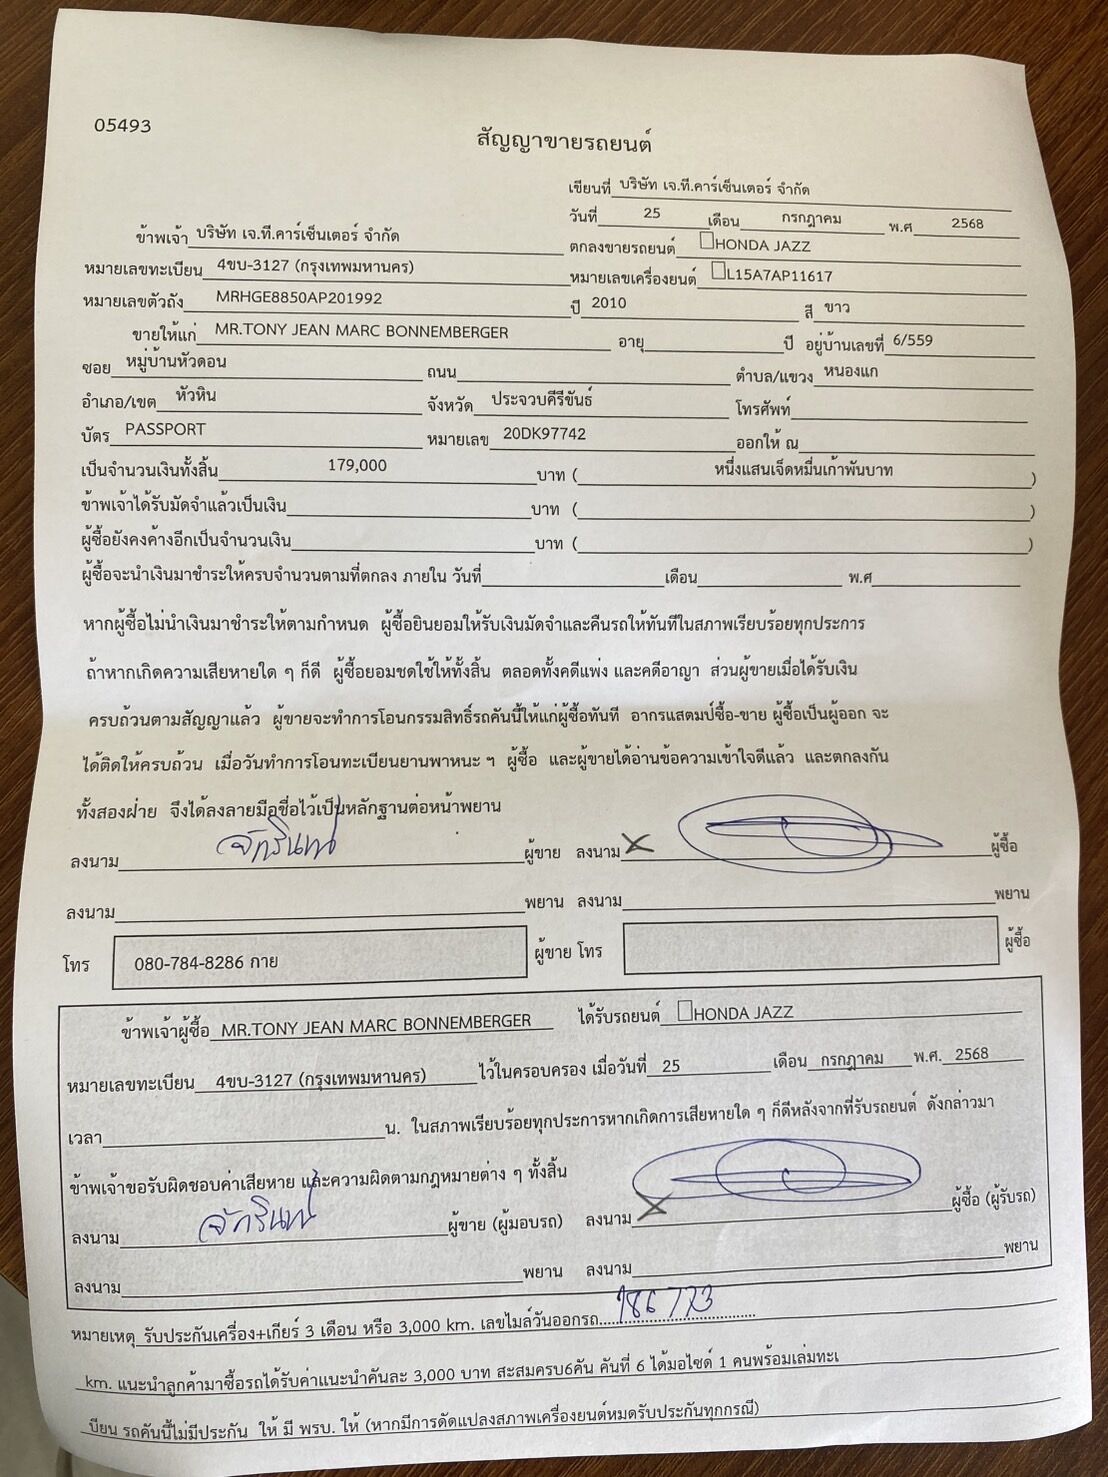 05493
สัญญาขายรถยนต์
เขียนที่ บริษัท เจ.ที.คาร์เซ็นเตอร์ จำกัด
วันที่ 25 เดือน กรกฎาคม พ.ศ 2568
ข้าพเจ้า บริษัท เจ.ที.คาร์เซ็นเตอร์ จำกัด ตกลงขายรถยนต์ HONDA JAZZ
หมายเลขทะเบียน 4ขบ-3127 (กรุงเทพมหานคร) หมายเลขเครื่องยนต์ L15A7AP11617
หมายเลขตัวถัง MRHGE8850AP201992 ปี 2010 สี ขาว
ขายให้แก่ MR.TONY JEAN MARC BONNEMBERGER อายุ ปี อยู่บ้านเลขที่ 6/559
ซอย หมู่บ้านหัวดอน ถนน ตำบล/แขวง หนองแก
อำเภอ/เขต หัวหิน จังหวัด ประจวบคีรีขันธ์ โทรศัพท์
บัตร PASSPORT หมายเลข 20DK97742 ออกให้ ณ
เป็นจำนวนเงินทั้งสิ้น 179,000 บาท ( หนึ่งแสนเจ็ดหมื่นเก้าพันบาท )
ข้าพเจ้าได้รับมัดจำแล้วเป็นเงิน บาท ( )
ผู้ซื้อยังคงค้างอีกเป็นจำนวนเงิน บาท ( )
ผู้ซื้อจะนำเงินมาชำระให้ครบจำนวนตามที่ตกลง ภายใน วันที่ เดือน พ.ศ
หากผู้ซื้อไม่นำเงินมาชำระให้ตามกำหนด ผู้ซื้อยินยอมให้รับเงินมัดจำและคืนรถให้ทันทีในสภาพเรียบร้อยทุกประการ
ถ้าหากเกิดความเสียหายใด ๆ ก็ดี ผู้ซื้อยอมชดใช้ให้ทั้งสิ้น ตลอดทั้งคดีแพ่ง และคดีอาญา ส่วนผู้ขายเมื่อได้รับเงิน
ครบถ้วนตามสัญญาแล้ว ผู้ขายจะทำการโอนกรรมสิทธิ์รถคันนี้ให้แก่ผู้ซื้อทันที อากรแสตมป์ซื้อ-ขาย ผู้ซื้อเป็นผู้ออก จะ
ได้ติดให้ครบถ้วน เมื่อวันทำการโอนทะเบียนยานพาหนะ ฯ ผู้ซื้อ และผู้ขายได้อ่านข้อความเข้าใจดีแล้ว และตกลงกัน
ทั้งสองฝ่าย จึงได้ลงลายมือชื่อไว้เป็นหลักฐานต่อหน้าพยาน
ลงนาม จักรินทร์ ผู้ขาย ลงนาม ผู้ซื้อ
ลงนาม พยาน ลงนาม พยาน
โทร 080-784-8286 กาย ผู้ขาย โทร ผู้ซื้อ
ข้าพเจ้าผู้ซื้อ MR.TONY JEAN MARC BONNEMBERGER ได้รับรถยนต์ HONDA JAZZ
หมายเลขทะเบียน 4ขบ-3127 (กรุงเทพมหานคร) ไว้ในครอบครอง เมื่อวันที่ 25 เดือน กรกฎาคม พ.ศ. 2568
เวลา น. ในสภาพเรียบร้อยทุกประการหากเกิดการเสียหายใด ๆ ก็ดีหลังจากที่รับรถยนต์ ดังกล่าวมา
ข้าพเจ้าขอรับผิดชอบค่าเสียหาย และความผิดตามกฎหมายต่าง ๆ ทั้งสิ้น
ลงนาม จักรินทร์ ผู้ขาย (ผู้มอบรถ) ลงนาม ผู้ซื้อ (ผู้รับรถ)
ลงนาม พยาน ลงนาม พยาน
หมายเหตุ รับประกันเครื่อง+เกียร์ 3 เดือน หรือ 3,000 km. เลขไมล์วันออกรถ 186773
km. แนะนำลูกค้ามาซื้อรถได้รับค่าแนะนำคันละ 3,000 บาท สะสมครบ6คัน คันที่ 6 ได้มอไซด์ 1 คนพร้อมเล่มทะเ
บียน รถคันนี้ไม่มีประกัน ให้ มี พรบ. ให้ (หากมีการดัดแปลงสภาพเครื่องยนต์หมดรับประกันทุกกรณี)